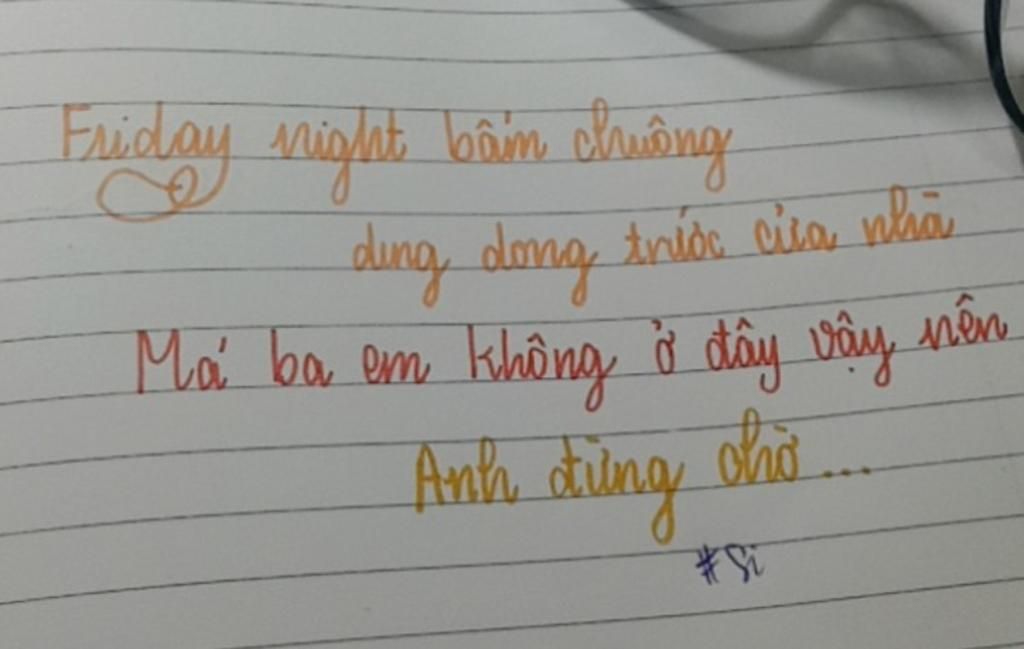 Friday night bấm chuông
dung dong trước cửa nhà
Má ba em không ở đây vậy nên
Anh đừng chờ...
#Si